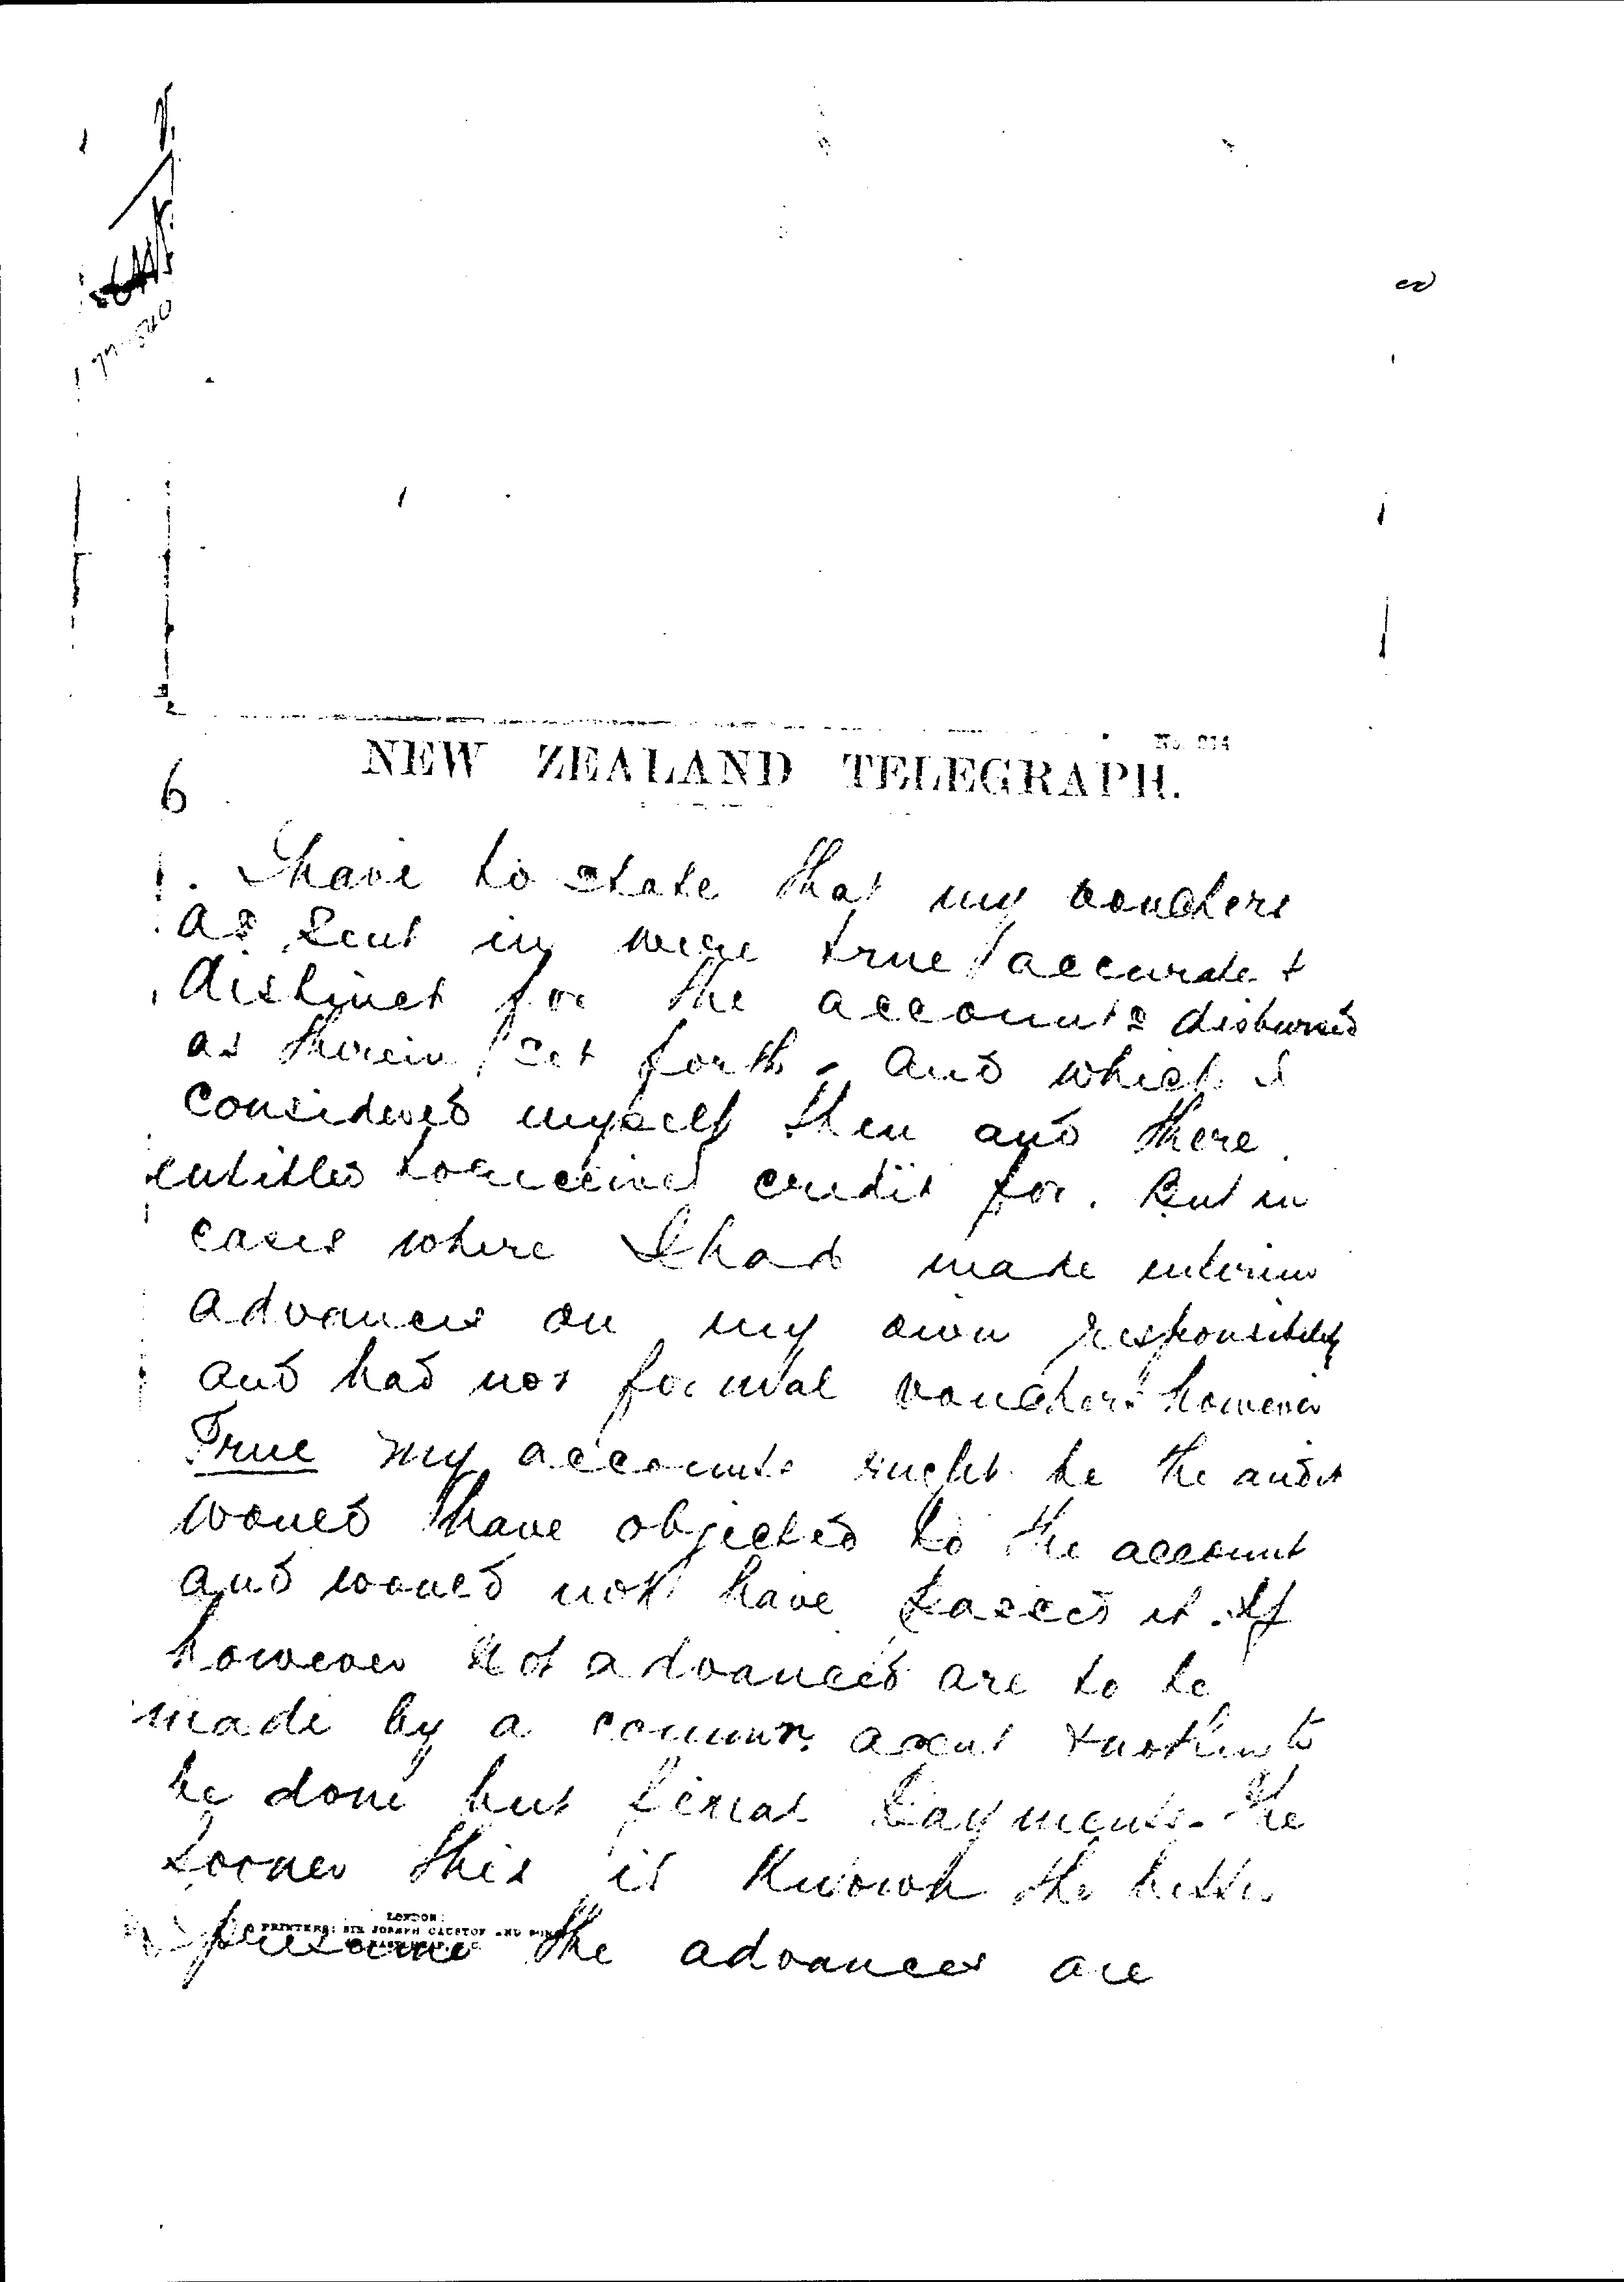 77-540
No. 214
NEW ZEALAND TELEGRAPH.
6
I have to state that my vouchers
as sent in were true accurate &
distinct for the accounts disbursed
as therein set forth - and which I
considered myself then and there
entitled to receive credit for. But in
cases where I had made interim
advances on my own responsibility
and had not formal vouchers however
True my accounts might be the audit
would have objected to the account
and would not have passed it. If
however not advances are to be
made by a commr. agent & nothing to
be done but final payments - the
sooner this is known the better
I presume the advances are
LONDON:
PRINTERS: SIR JOSEPH CAUSTON AND SONS